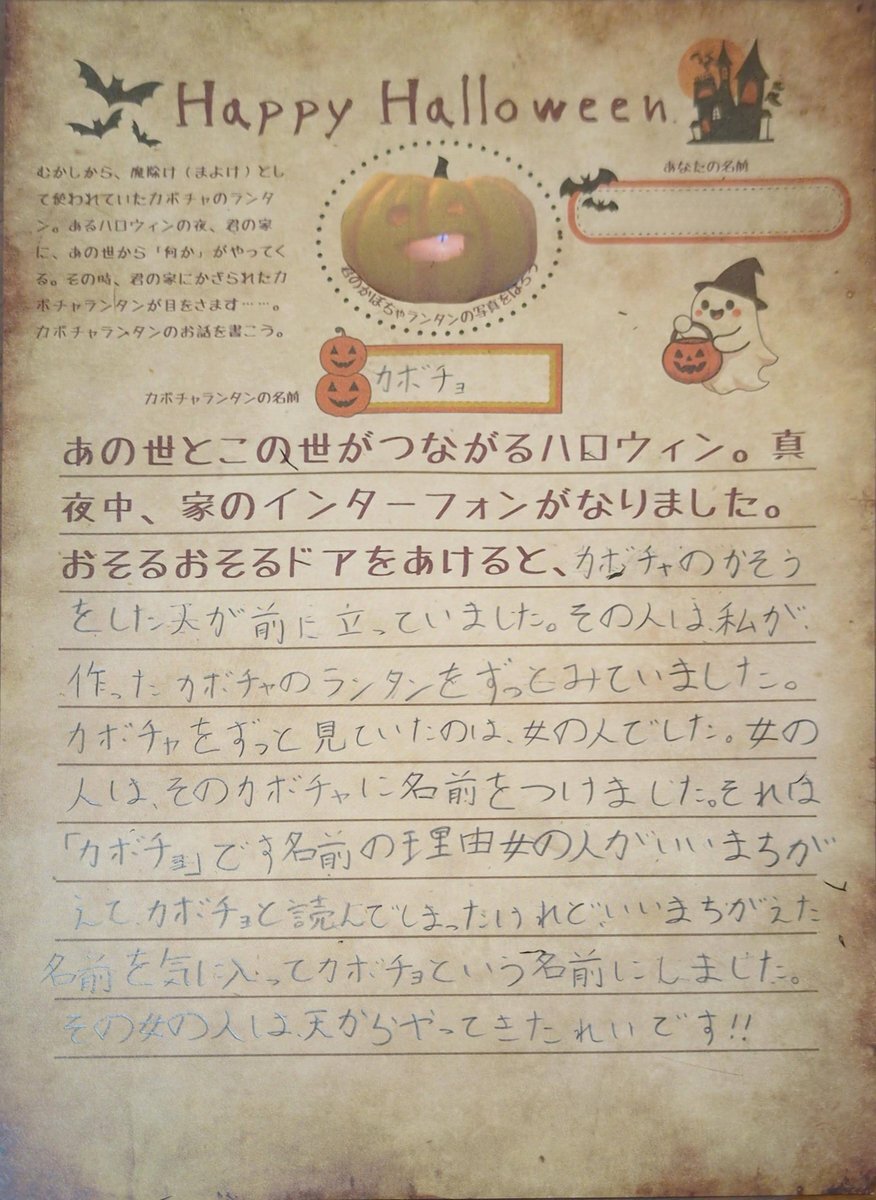 Happy Halloween
むかしから、魔除け（まよけ）とし
て使われていたカボチャのランタ
ン。あるハロウィンの夜、君の家
に、あの世から「何か」がやってく
る。その時、君の家にかざられたカ
ボチャランタンが目をさます……。
カボチャランタンのお話を書こう。
君のかぼちゃランタンの写真をはろう
あなたの名前
カボチャランタンの名前
カボチョ
あの世とこの世がつながるハロウィン。真
夜中、家のインターフォンがなりました。
おそるおそるドアをあけると、カボチャのかそう
をした天が前に立っていました。その人は、私が、
作ったカボチャのランタンをずっとみていました。
カボチャをずっと見ていたのは、女の人でした。女の
人は、そのカボチャに名前をつけました。それは
「カボチョ」です名前の理由女の人がいいまちが
えて、カボチョと読んでしまったけれどいいまちがえた
名前を気に入ってカボチョという名前にしました。
その女の人は、天からやってきたれいです!!